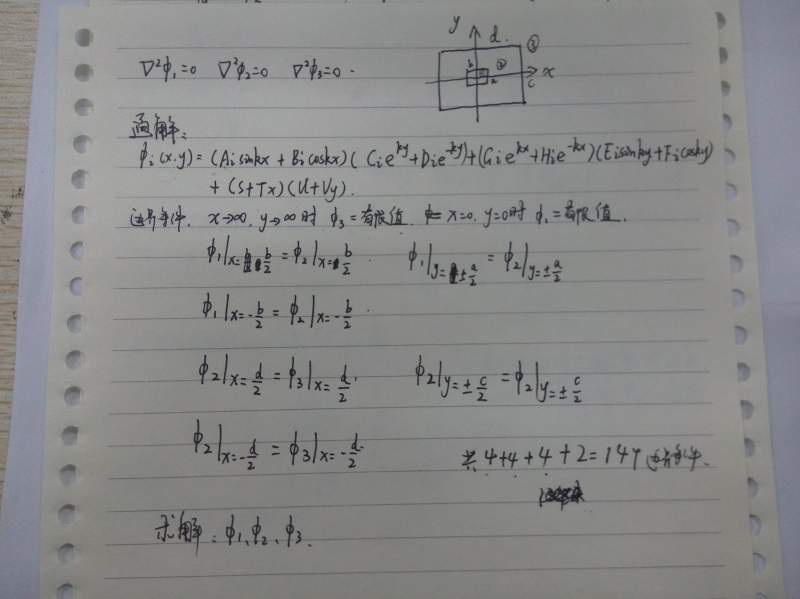 y
d
③
b ②
x
a
c
∇²ϕ₁=0 ∇²ϕ₂=0 ∇²ϕ₃=0.
通解:
ϕᵢ(x.y) = (Aᵢsinkx + Bᵢcoskx)(Cᵢe^ky+Dᵢe^-ky)+(Gᵢe^kx+Hᵢe^-kx)(Eᵢsinky+Fᵢcosky)
+ (S+Tx)(U+Vy).
边界条件, x→∞, y→∞时 ϕ₃=有限值. x=0, y=0时 ϕ₁=有限值.
ϕ₁|x=b/2 = ϕ₂|x=b/2 ϕ₁|y=±a/2 = ϕ₂|y=±a/2
ϕ₁|x=-b/2 = ϕ₂|x=-b/2
ϕ₂|x=d/2 = ϕ₃|x=d/2. ϕ₂|y=±c/2 = ϕ₂|y=±c/2
ϕ₂|x=-d/2 = ϕ₃|x=-d/2
共 4+4+4+2=14个边界条件.
求解: ϕ₁、ϕ₂、ϕ₃.